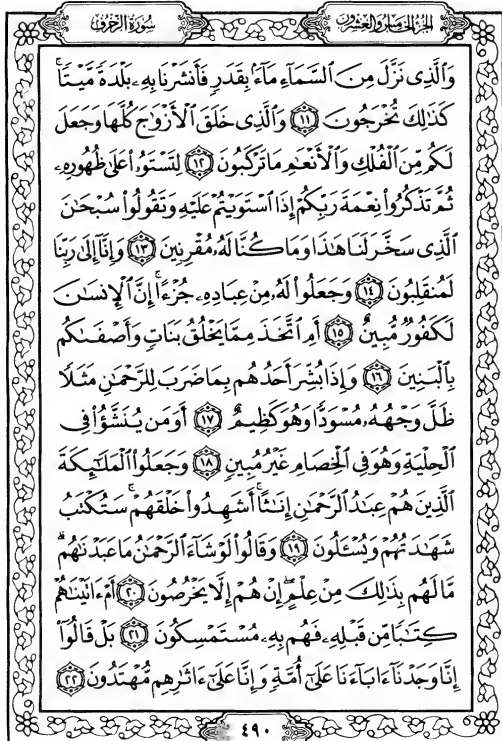 سُورَةُ الزُّخْرُفِ
الجُزْءُ الخَامِسُ وَالعِشْرُونَ
وَٱلَّذِى نَزَّلَ مِنَ ٱلسَّمَآءِ مَآءًۢ بِقَدَرٍ فَأَنشَرْنَا بِهِۦ بَلْدَةً مَّيْتًاۚ
كَذَٰلِكَ تُخْرَجُونَ ١١ وَٱلَّذِى خَلَقَ ٱلْأَزْوَٰجَ كُلَّهَا وَجَعَلَ
لَكُم مِّنَ ٱلْفُلْكِ وَٱلْأَنْعَٰمِ مَا تَرْكَبُونَ ١٢ لِتَسْتَوُۥا۟ عَلَىٰ ظُهُورِهِۦ
ثُمَّ تَذْكُرُوا۟ نِعْمَةَ رَبِّكُمْ إِذَا ٱسْتَوَيْتُمْ عَلَيْهِ وَتَقُولُوا۟ سُبْحَٰنَ
ٱلَّذِى سَخَّرَ لَنَا هَٰذَا وَمَا كُنَّا لَهُۥ مُقْرِنِينَ ١٣ وَإِنَّآ إِلَىٰ رَبِّنَا
لَمُنقَلِبُونَ ١٤ وَجَعَلُوا۟ لَهُۥ مِنْ عِبَادِهِۦ جُزْءًاۚ إِنَّ ٱلْإِنسَٰنَ
لَكَفُورٌ مُّبِينٌ ١٥ أَمِ ٱتَّخَذَ مِمَّا يَخْلُقُ بَنَاتٍ وَأَصْفَىٰكُم
بِٱلْبَنِينَ ١٦ وَإِذَا بُشِّرَ أَحَدُهُم بِمَا ضَرَبَ لِلرَّحْمَٰنِ مَثَلًا
ظَلَّ وَجْهُهُۥ مُسْوَدًّا وَهُوَ كَظِيمٌ ١٧ أَوَمَن يُنَشَّؤُا۟ فِى
ٱلْحِلْيَةِ وَهُوَ فِى ٱلْخِصَامِ غَيْرُ مُبِينٍ ١٨ وَجَعَلُوا۟ ٱلْمَلَٰٓئِكَةَ
ٱلَّذِينَ هُمْ عِبَٰدُ ٱلرَّحْمَٰنِ إِنَٰثًاۚ أَشَهِدُوا۟ خَلْقَهُمْۚ سَتُكْتَبُ
شَهَٰدَتُهُمْ وَيُسْـَٔلُونَ ١٩ وَقَالُوا۟ لَوْ شَآءَ ٱلرَّحْمَٰنُ مَا عَبَدْنَٰهُمۗ
مَّا لَهُم بِذَٰلِكَ مِنْ عِلْمٍۖ إِنْ هُمْ إِلَّا يَخْرُصُونَ ٢٠ أَمْ ءَاتَيْنَٰهُمْ
كِتَٰبًا مِّن قَبْلِهِۦ فَهُم بِهِۦ مُسْتَمْسِكُونَ ٢١ بَلْ قَالُوٓا۟
إِنَّا وَجَدْنَآ ءَابَآءَنَا عَلَىٰٓ أُمَّةٍ وَإِنَّا عَلَىٰٓ ءَاثَٰرِهِم مُّهْتَدُونَ ٢٢
٤٩٠